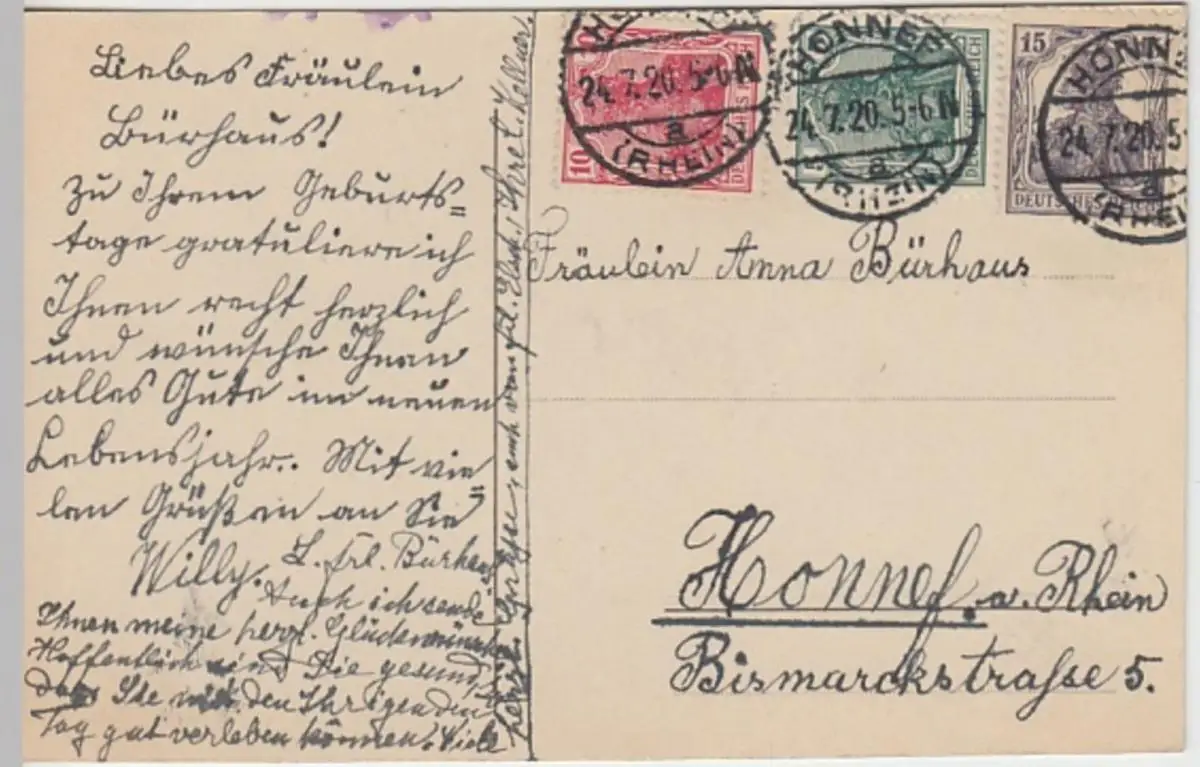 Liebes Fräulein
Bürhaus!
Zu Ihrem Geburts=
tage gratuliere ich
Ihnen recht herzlich
und wünsche Ihnen
alles Gute im neuen
Lebensjahr. Mit vie=
len Grüßen an Sie
Willy. L. Frl. Bürhaus
Auch ich sende
Ihnen meine herzl. Glückwünsche
Hoffentlich sind Sie gesund,
dass Sie mit den Ihrigen den
Tag gut verleben können. Viele
herzl. Grüsse, auch von Ihre
HONNEF
24.7.20. 5-6 N
a
(RHEIN)
10
DEUTSCHES REICH
HONNEF
24.7.20. 5-6 N
a
(RHEIN)
DEUTSCHES REICH
HONN
24.7.20. 5
a
(RHEIN
15
DEUTSCHES REICH
Fräulein Anna Bürhaus
Honnef. a. Rhein
Bismarckstrasse 5.